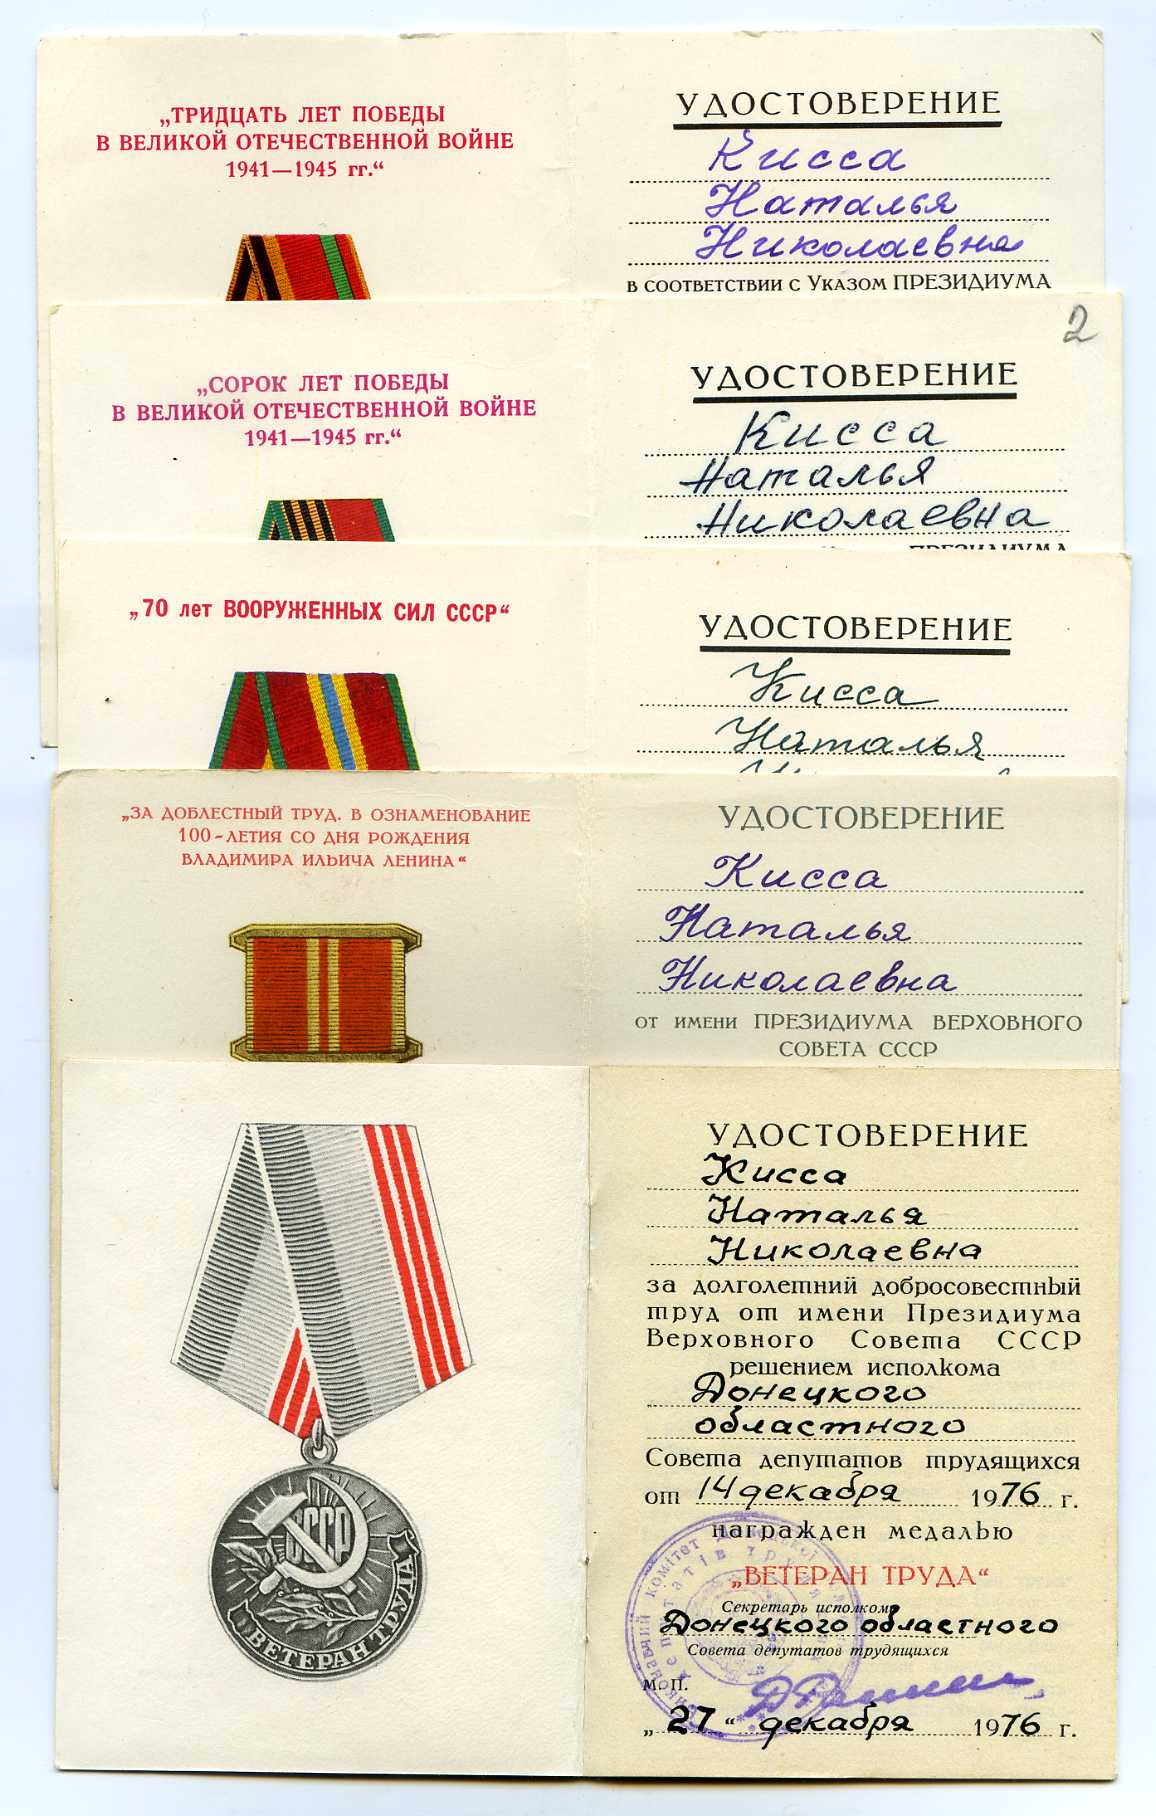 „ТРИДЦАТЬ ЛЕТ ПОБЕДЫ
В ВЕЛИКОЙ ОТЕЧЕСТВЕННОЙ ВОЙНЕ
1941—1945 гг.“
УДОСТОВЕРЕНИЕ
Кисса
Наталья
Николаевна
в соответствии с Указом ПРЕЗИДИУМА
2
„СОРОК ЛЕТ ПОБЕДЫ
В ВЕЛИКОЙ ОТЕЧЕСТВЕННОЙ ВОЙНЕ
1941—1945 гг.“
УДОСТОВЕРЕНИЕ
Кисса
Наталья
Николаевна
ПРЕЗИДИУМА
„70 лет ВООРУЖЕННЫХ СИЛ СССР“
УДОСТОВЕРЕНИЕ
Кисса
Наталья
„ЗА ДОБЛЕСТНЫЙ ТРУД. В ОЗНАМЕНОВАНИЕ
100-ЛЕТИЯ СО ДНЯ РОЖДЕНИЯ
ВЛАДИМИРА ИЛЬИЧА ЛЕНИНА“
УДОСТОВЕРЕНИЕ
Кисса
Наталья
Николаевна
ОТ ИМЕНИ ПРЕЗИДИУМА ВЕРХОВНОГО
СОВЕТА СССР
СССР
ВЕТЕРАН ТРУДА
УДОСТОВЕРЕНИЕ
Кисса
Наталья
Николаевна
за долголетний добросовестный
труд от имени Президиума
Верховного Совета СССР
решением исполкома
Донецкого
областного
Совета депутатов трудящихся
от 14 декабря 1976 г.
награжден медалью
„ВЕТЕРАН ТРУДА“
Секретарь исполкома
Донецкого областного
Совета депутатов трудящихся
М. П.
„27“ декабря 1976 г.